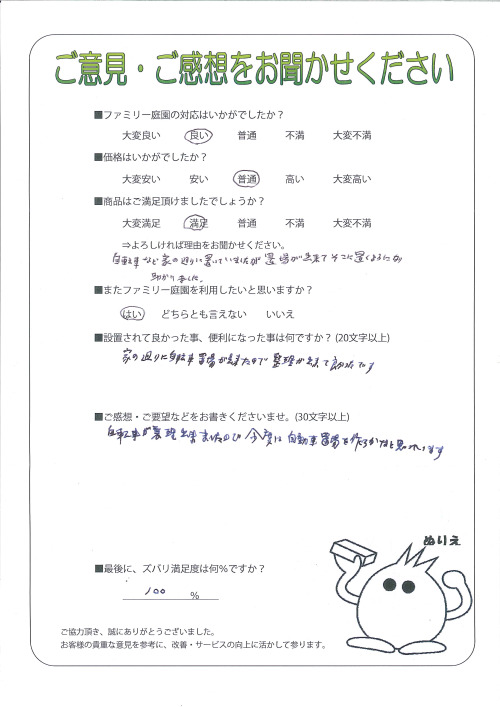 ご意見・ご感想をお聞かせください
■ファミリー庭園の対応はいかがでしたか？
大変良い 良い 普通 不満 大変不満
■価格はいかがでしたか？
大変安い 安い 普通 高い 大変高い
■商品はご満足頂けましたでしょうか？
大変満足 満足 普通 不満 大変不満
⇒よろしければ理由をお聞かせください。
自転車など家の辺りに置いていましたが置場が出来てそこに置くようになり
助かりました。
■またファミリー庭園を利用したいと思いますか？
はい どちらとも言えない いいえ
■設置されて良かった事、便利になった事は何ですか？(20文字以上)
家の辺りに自転車置場が出来たので整理が出来て
■ご感想・ご要望などをお書きくださいませ。(30文字以上)
自転車が整理出来ましたので今度は自動車置場を作ろうかなと思っています
ぬりえ
■最後に、ズバリ満足度は何％ですか？
100 %
ご協力頂き、誠にありがとうございました。
お客様の貴重な意見を参考に、改善・サービスの向上に活かして参ります。